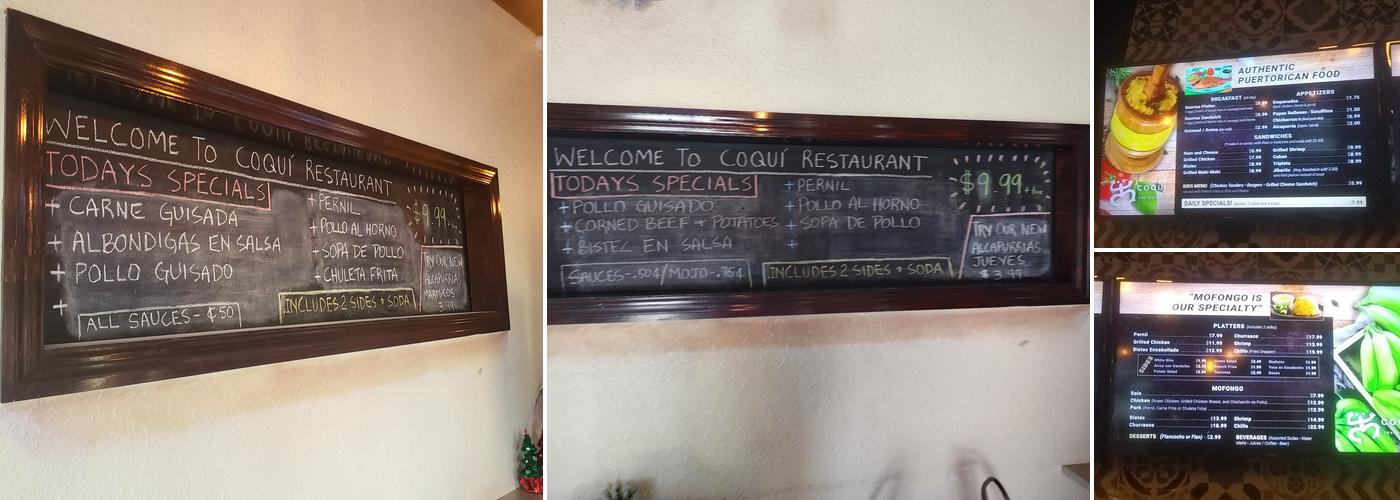 WELCOME TO COQUÍ RESTAURANT
TODAYS SPECIALS
+ CARNE GUISADA
+ ALBONDIGAS EN SALSA
+ POLLO GUISADO
+
ALL SAUCES - ¢50
+ PERNIL
+ POLLO AL HORNO
+ SOPA DE POLLO
+ CHULETA FRITA
INCLUDES 2 SIDES + SODA
$9.99
TRY OUR NEW
ALCAPURRIAS
MARISCOS
3.99
WELCOME TO COQUÍ RESTAURANT
TODAYS SPECIALS
+ POLLO GUISADO
+ CORNED BEEF + POTATOES
+ BISTEC EN SALSA
SAUCES-.50¢/MOJO-.75¢
+ PERNIL
+ POLLO AL HORNO
+ SOPA DE POLLO
+
INCLUDES 2 SIDES + SODA
$9.99
TRY OUR NEW
ALCAPURRIAS
JUEYES
$3.99
AUTHENTIC
PUERTORICAN FOOD
BREAKFAST
Sunrise Platter
Sunrise Sandwich
Oatmeal / Avena $2.99
APPETIZERS
Empanadas $1.75
Papas Rellenas / Sorullitos $1.50
Chicharron $6.99
Alcapurria $2.00
SANDWICHES
Ham and Cheese $5.99
Grilled Chicken $7.99
Bistec $8.99
Grilled Mahi-Mahi $8.99
Grilled Shrimp $9.99
Cuban $8.99
Tripleta $8.99
Jibarito
KIDS MENU (Chicken Tenders - Burgers - Grilled Cheese Sandwich) $5.99
DAILY SPECIALS! $7.99
COQUI
"MOFONGO IS
OUR SPECIALTY"
PLATTERS (includes 2 sides)
Pernil $7.99
Grilled Chicken $11.99
Bistec Encebollado $12.99
Churrasco $17.99
Shrimp $13.99
Chillo (Fried Snapper) $19.99
SIDES
White Rice
Arroz con Gandules
Potato Salad
Green Salad $2.49
French Fries $1.99
Tostones $2.49
Maduros $1.99
Yuca en Escabeche $1.99
Beans $1.99
MOFONGO
Solo $7.99
Chicken (Roast Chicken, Grilled Chicken Breast, and Chicharrón de Pollo) $12.99
Pork (Pernil, Carne Frita or Chuleta Frita) $13.99
Bistec $13.99
Churrasco $18.99
Shrimp $14.99
Chillo $22.99
DESSERTS (Flancocho or Flan) - $2.99
BEVERAGES (Assorted Sodas - Water
Malta - Juices / Coffee - Beer)